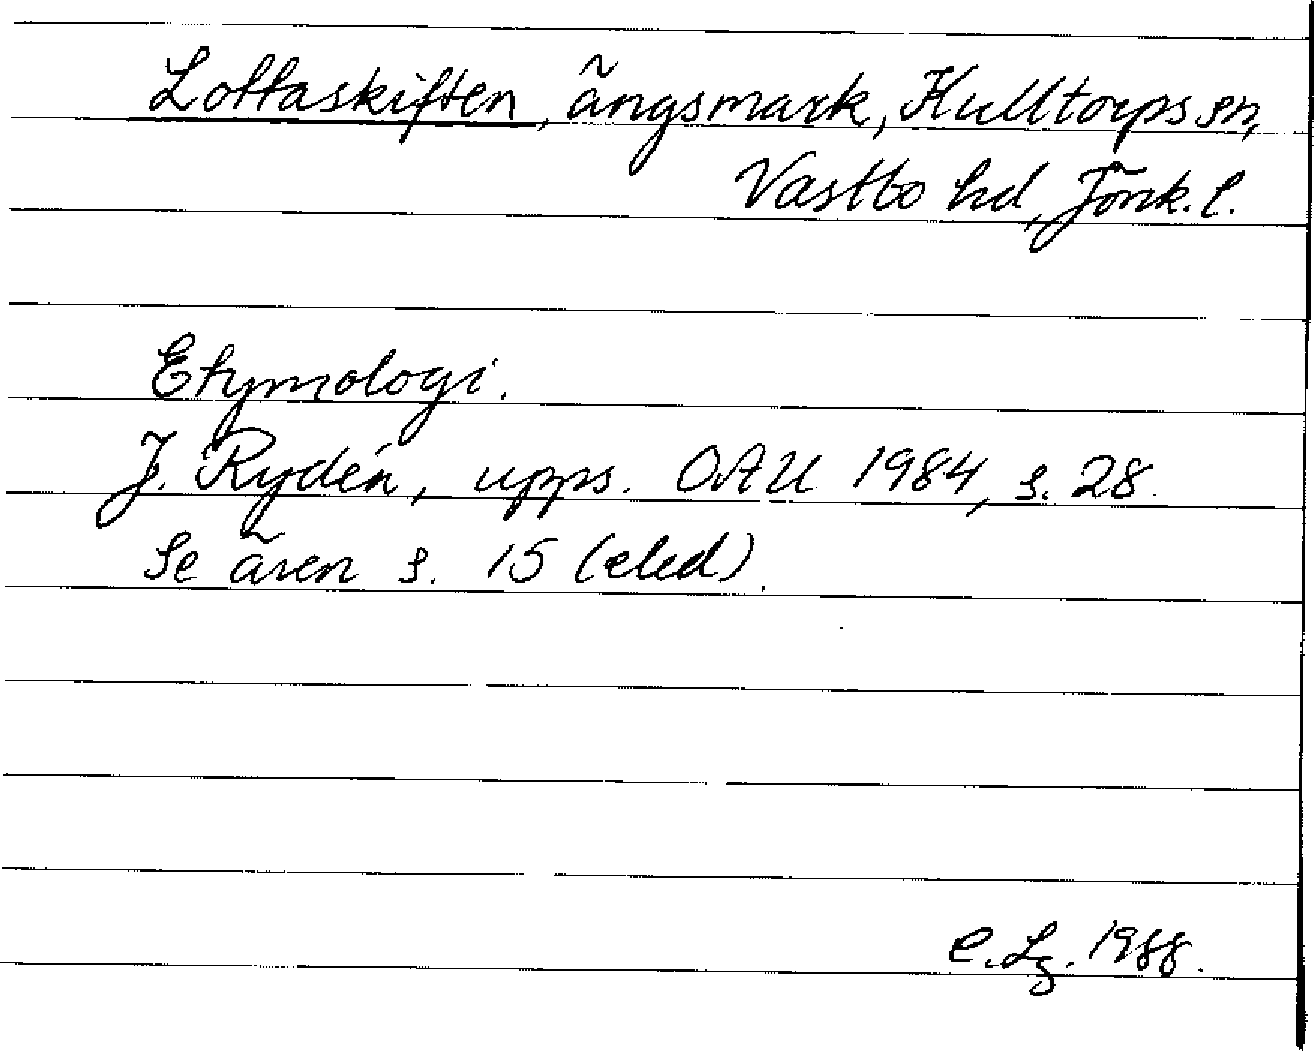 Lottaskiften, ängsmark, Kulltorps sn,
Västbo hd, Jönk. l.
Etymologi.
J. Rydén, upps. OAU 1984, s. 28.
Se även s. 15 (eled).
C. Lg. 1988.